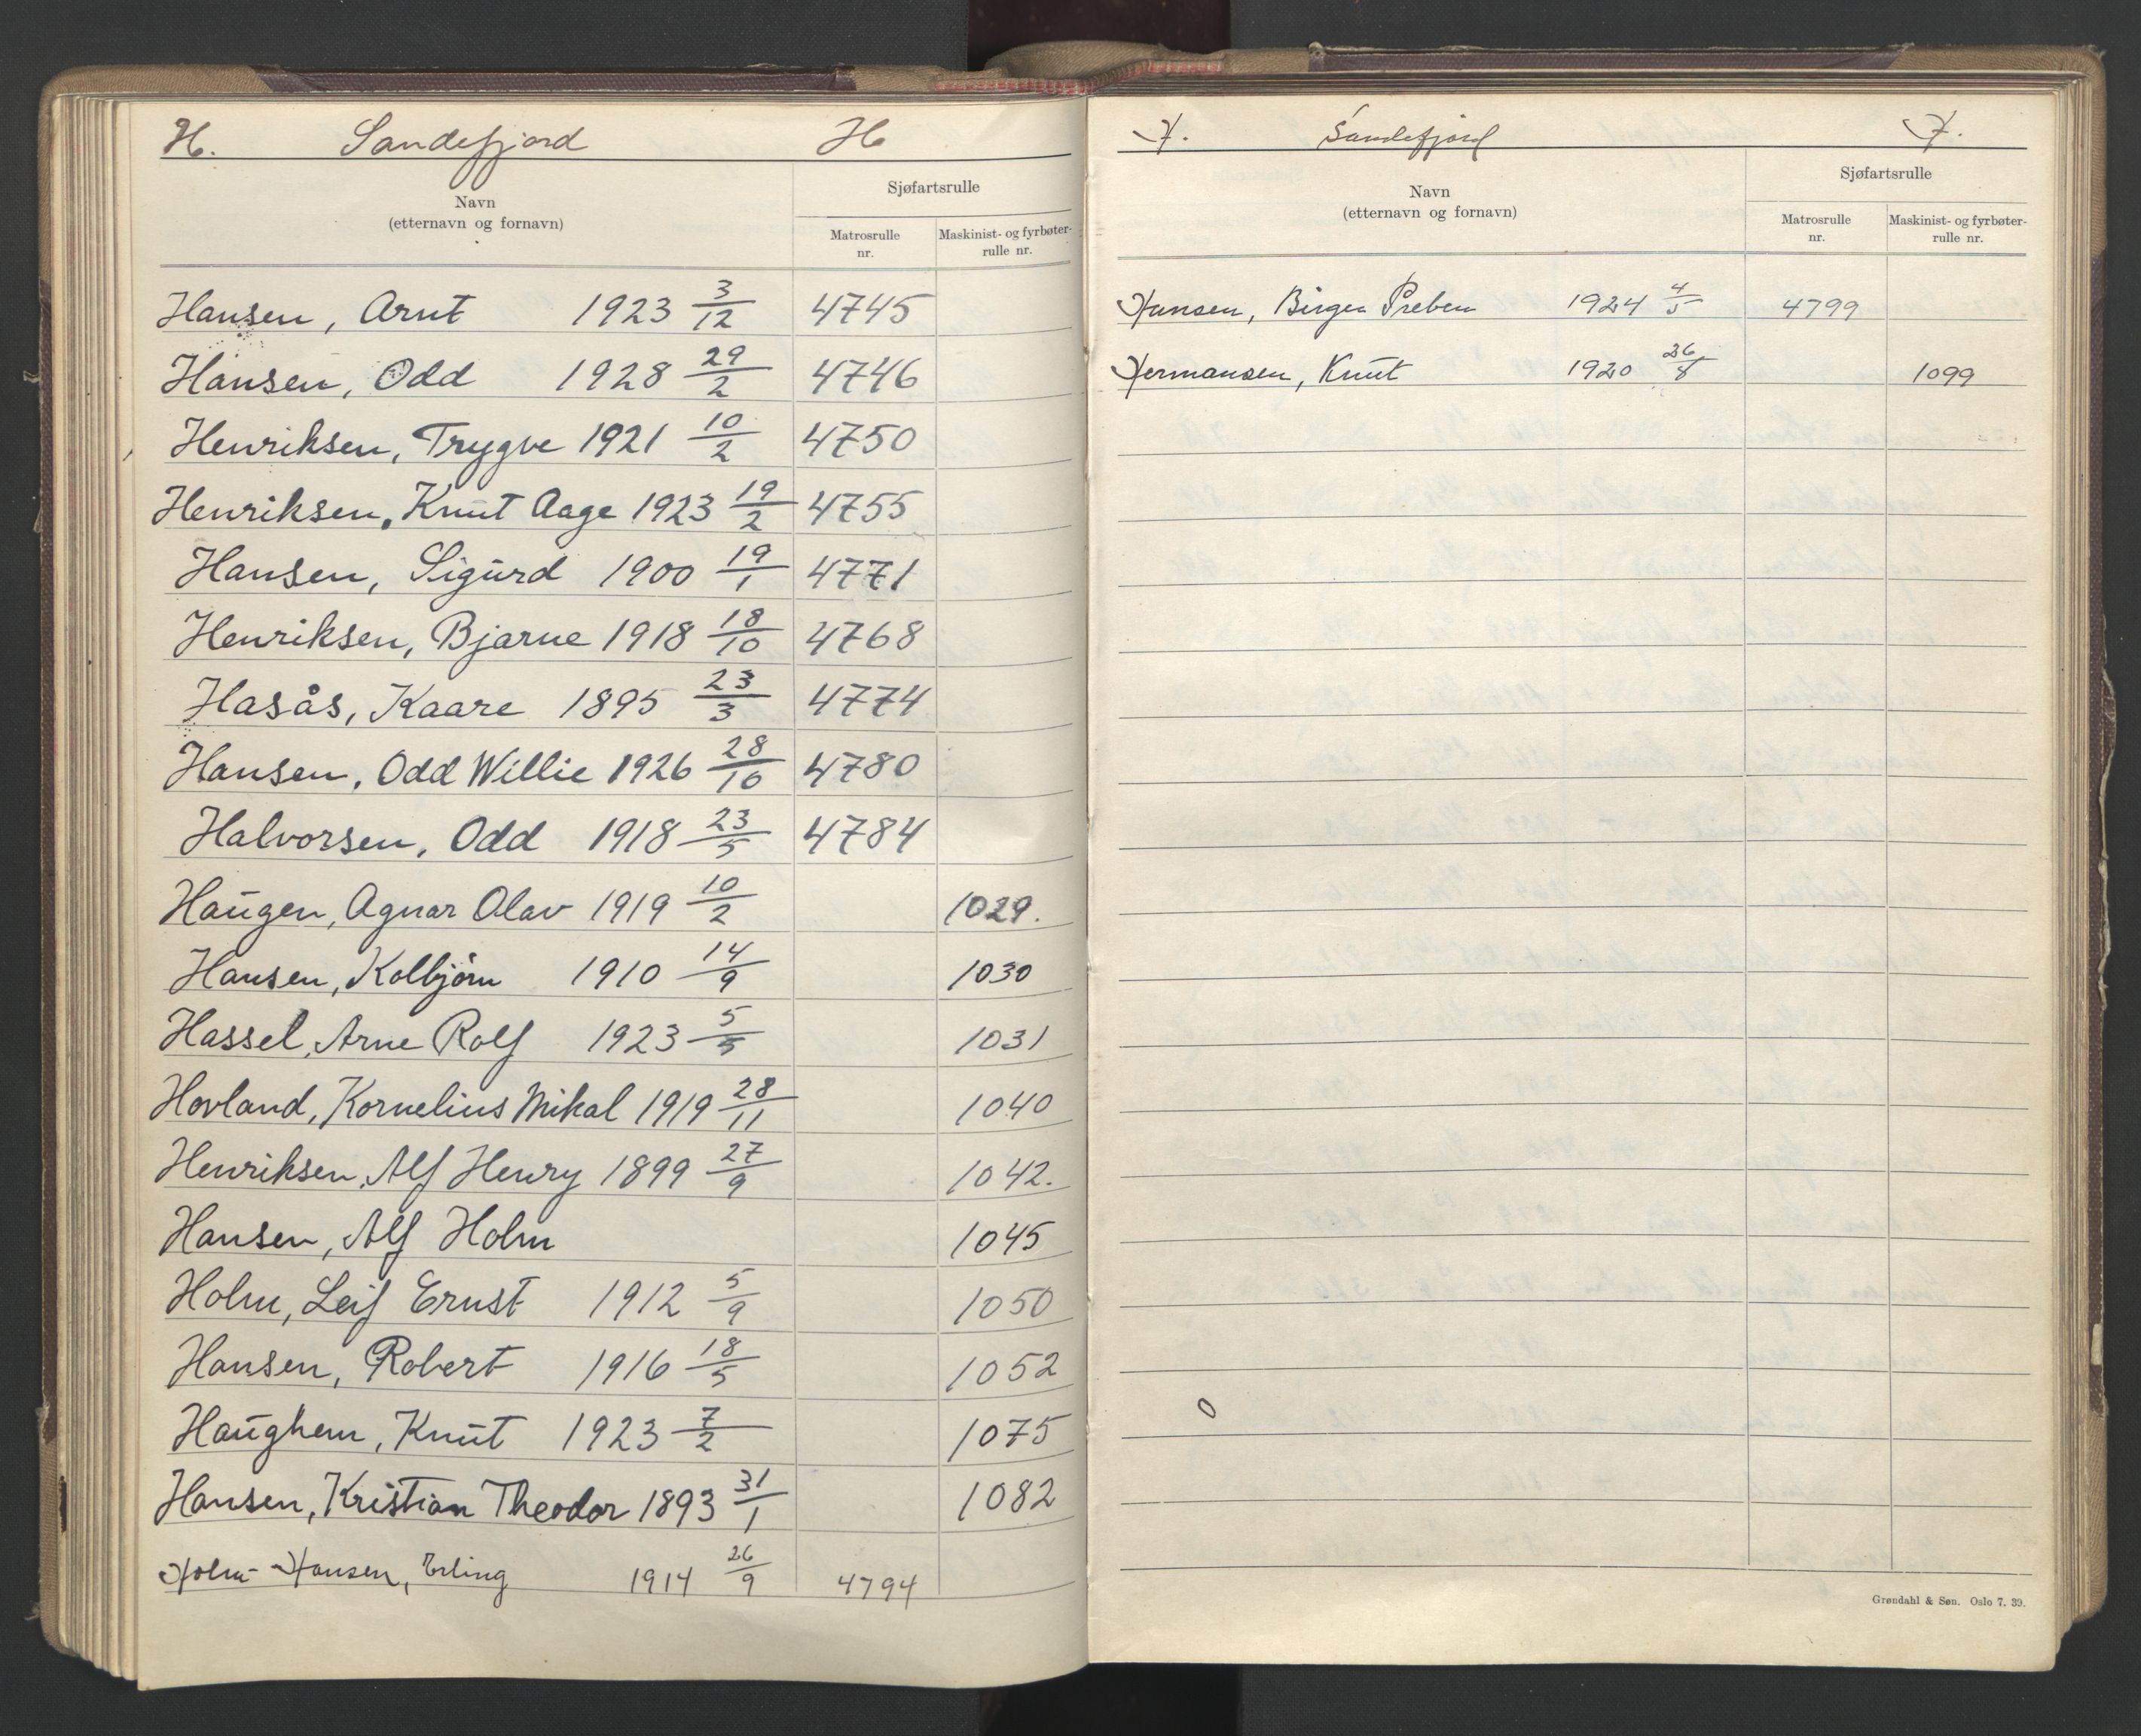 H. Sandefjord H
Navn
(etternavn og fornavn)
Sjøfartsrulle
Matrosrulle nr.
Maskinist- og fyrbøter-rulle nr.
Hansen, Arnt 1923 3/12 4745
Hansen, Odd 1928 29/2 4746
Henriksen, Trygve 1921 10/2 4750
Henriksen, Knut Aage 1923 19/2 4755
Hansen, Sigurd 1900 19/1 4771
Henriksen, Bjarne 1918 18/10 4768
Hasås, Kaare 1895 23/3 4774
Hansen, Odd Willie 1926 28/10 4780
Halvorsen, Odd 1918 23/5 4784
Haugen, Agnar Olav 1919 10/2 1029.
Hansen, Kolbjörn 1910 14/9 1030
Hassel, Arne Rolf 1923 5/5 1031
Hovland, Kornelius Mikal 1919 28/11 1040
Henriksen, Alf Henry 1899 27/9 1042.
Hansen, Alf Holm 1045
Holm, Leif Ernst 1912 5/9 1050
Hansen, Robert 1916 18/5 1052
Haughem, Knut 1923 7/2 1075
Hansen, Kristian Theodor 1893 31/1 1082
Holm-Hansen, Erling 1914 26/9 4794
H. Sandefjord H.
Navn
(etternavn og fornavn)
Sjøfartsrulle
Matrosrulle nr.
Maskinist- og fyrbøter-rulle nr.
Hansen, Birger Preben 1924 4/5 4799
Hermansen, Knut 1920 26/8 1099
Grøndahl & Søn. Oslo 7. 39.